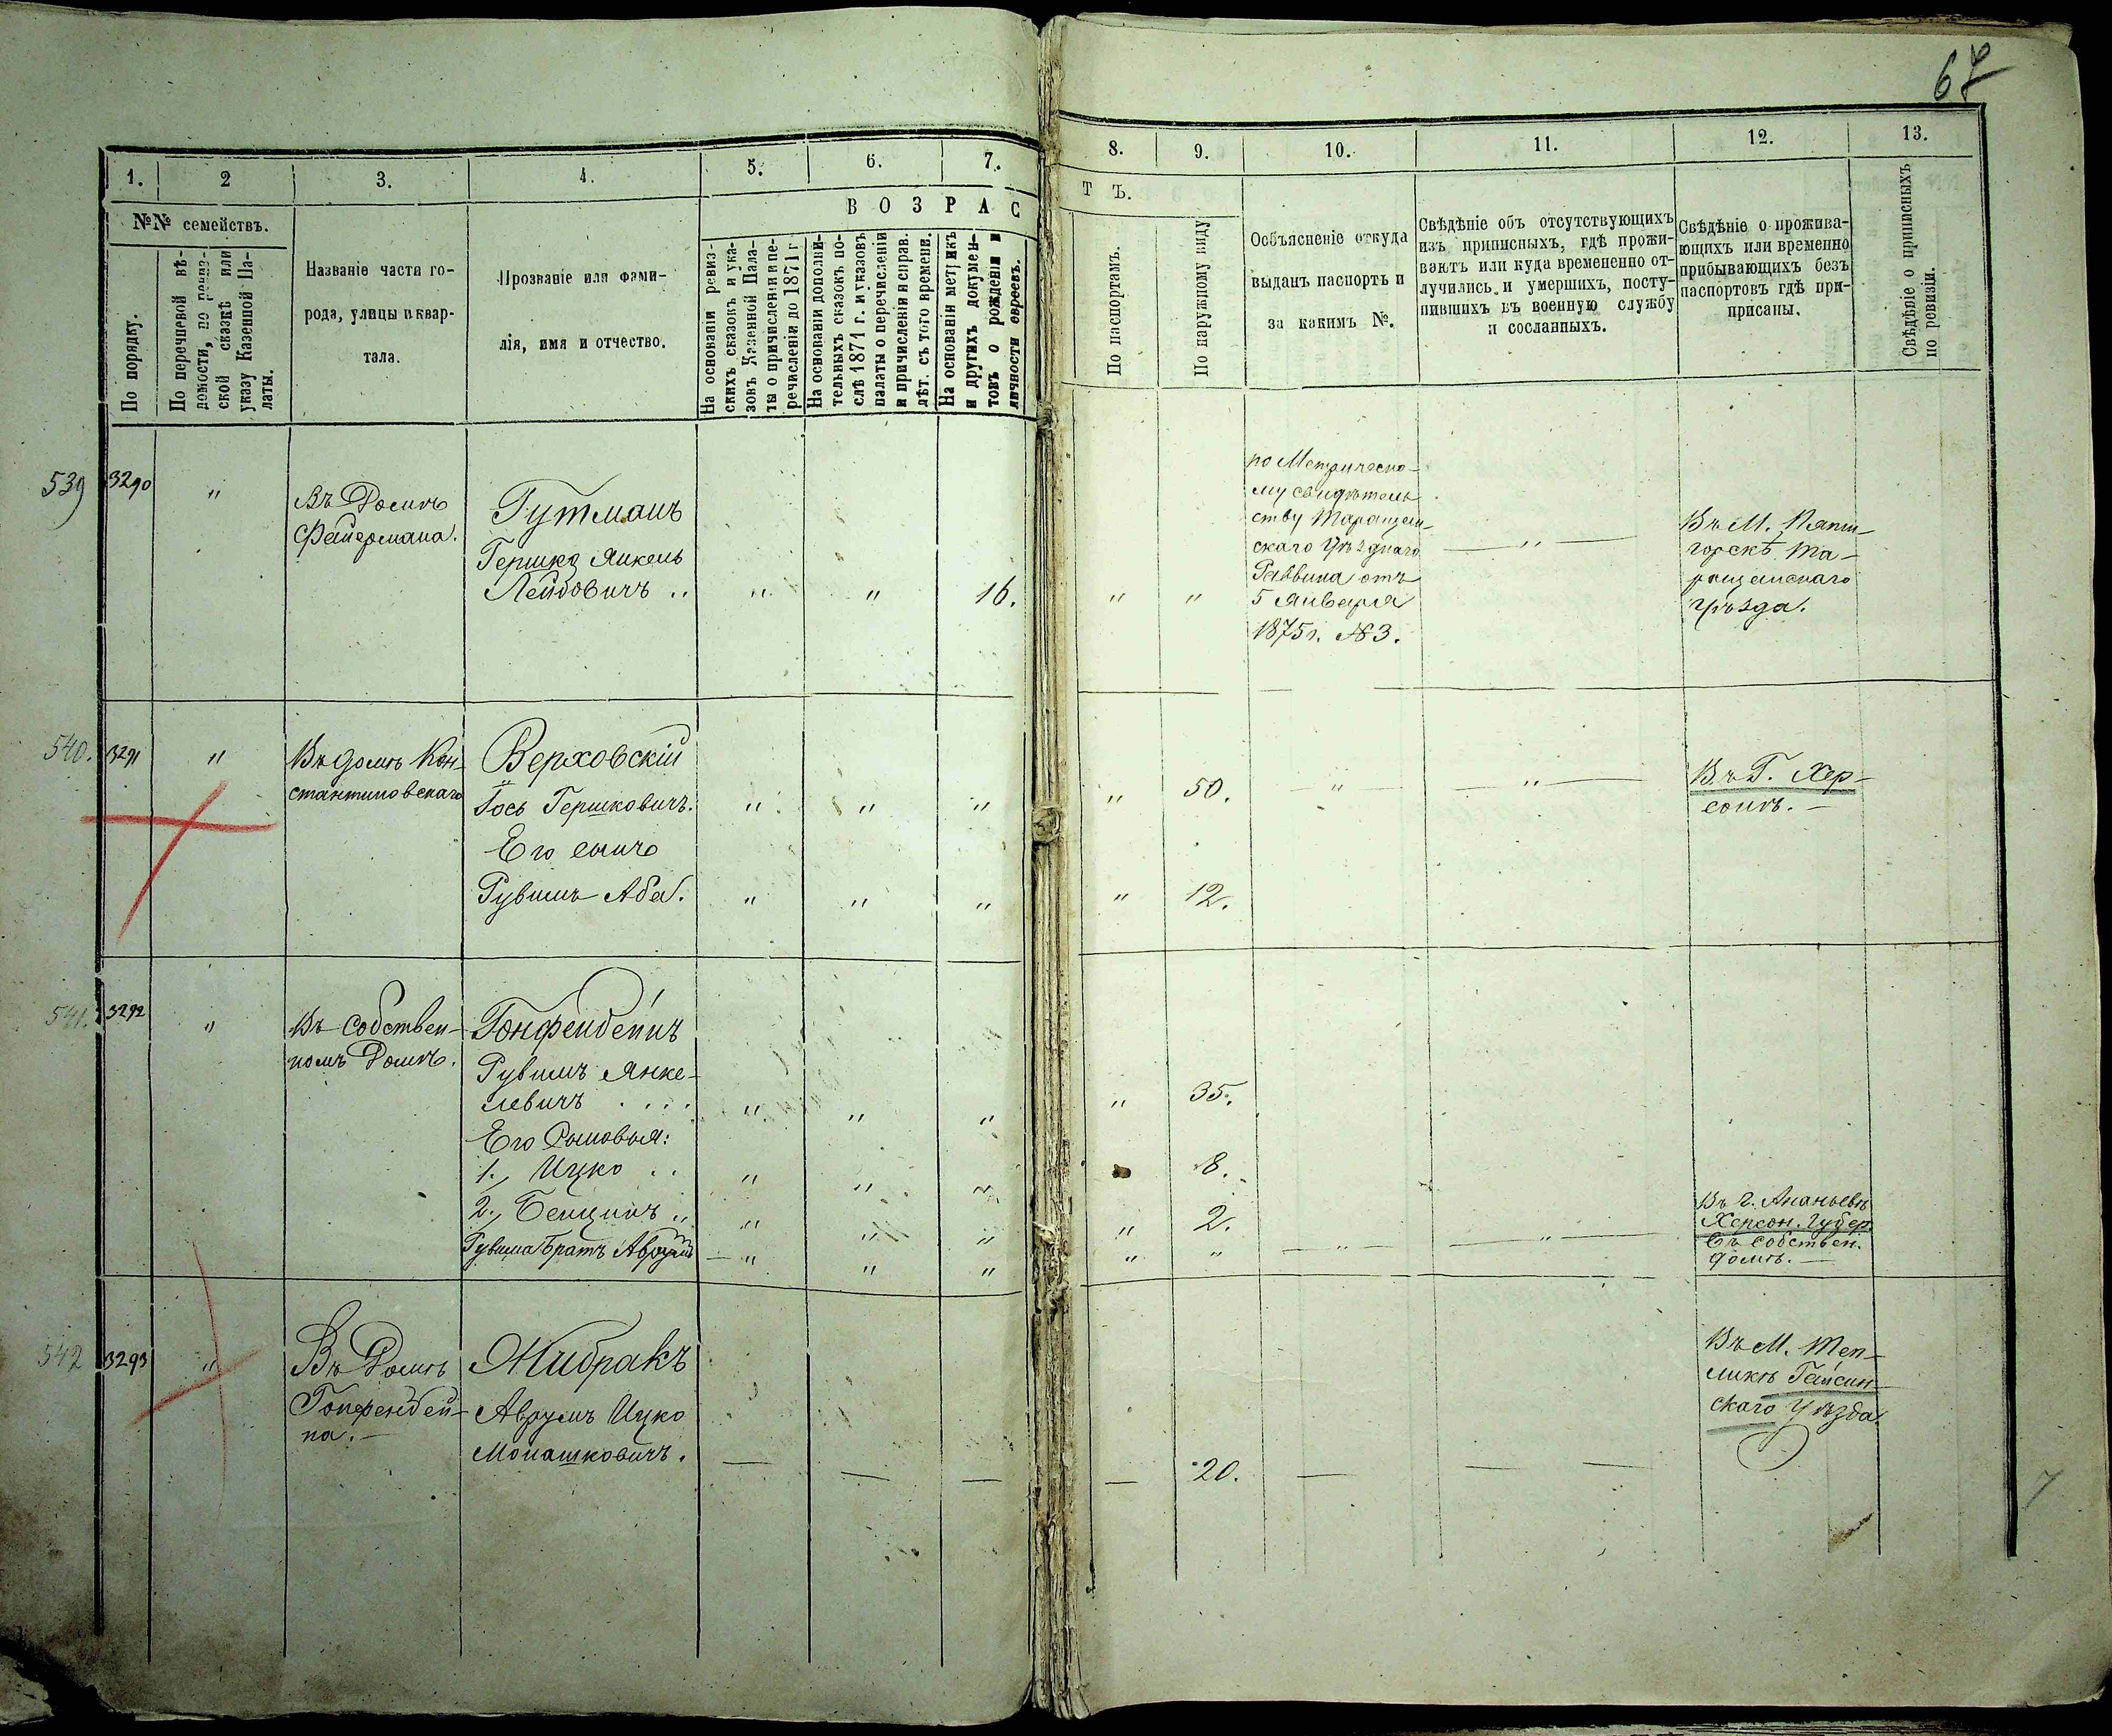 67
1.
2
3.
4.
5.
6.
7.
8.
9.
10.
11.
12.
13.
№№ семействъ.
По порядку.
По перечневой вѣ-
домости, по
ской сказкѣ или
указу Казенной Па-
латы.
Названіе части го-
рода, улицы и квар-
тала.
Прозваніе или фами-
лія, имя и отчество.
ВОЗРАС
ТЪ.
На основаніи ревиз-
скихъ сказокъ и ука-
зовъ Казенной Пала-
ты о причисленіи и пе-
речисленіи до 1871 г
На основаніи дополни-
тельныхъ сказокъ по-
слѣ 1871 г. и указовъ
палаты о перечисленіи
и причисленіи и справ.
лѣт. съ того времени.
На основаніи метрикъ
и другихъ докумен-
товъ о рожденіи и
личности евреевъ.
По паспортамъ.
По наружному виду
Объясненіе откуда
выданъ паспортъ и
за какимъ №.
Свѣдѣніе объ отсутствующихъ
изъ приписныхъ, гдѣ прожи-
ваютъ или куда временно от-
лучились и умершихъ, посту-
пившихъ въ военную службу
и сосланныхъ.
Свѣдѣніе о прожива-
ющихъ или временно
прибывающихъ безъ
паспортовъ гдѣ при-
писаны.
Свѣдѣніе о приписныхъ
по ревизіи.
539
3290
"
Въ Домѣ
Файермана.
Гутманъ
Гершко Янкель
Лейбовичъ ..
" " 16. " "
по Метрическо-
му свидѣтель
ству Таращан-
скаго Уѣзднаго
Раввина отъ
5 Января
1875 г. № 3.
"
Въ М. Пяти-
горскѣ Та-
ращанскаго
Уѣзда.
540.
3291
"
Въ домѣ Кон-
стантиновскаго
Верховскій
Іось Гершковичъ.
" " " " 50. " "
Въ Г. Хер-
сонѣ.
Его сынъ
Рувимъ Аба.
" " " " 12.
541.
3292
"
Въ собствен-
номъ Домѣ.
Гонфенбейнъ
Рувимъ Янке-
левичъ ....
" " " " 35.
Его Сыновья:
1., Ицко ..
" " " 8.
2., Бенціинъ ..
" " " " 2.
Рувима братъ Аврумъ
" " " " " " "
Въ г. Ананьевѣ
Херсон. Губер
въ собствен.
домѣ.
542
3293
"
Въ Домѣ
Гонфенбей-
на.
Жибракъ
Аврумъ Ицко
Монашковичъ.
— — — — 20. — — —
Въ М. Теп-
ликѣ Гайсин-
скаго Уѣзда.